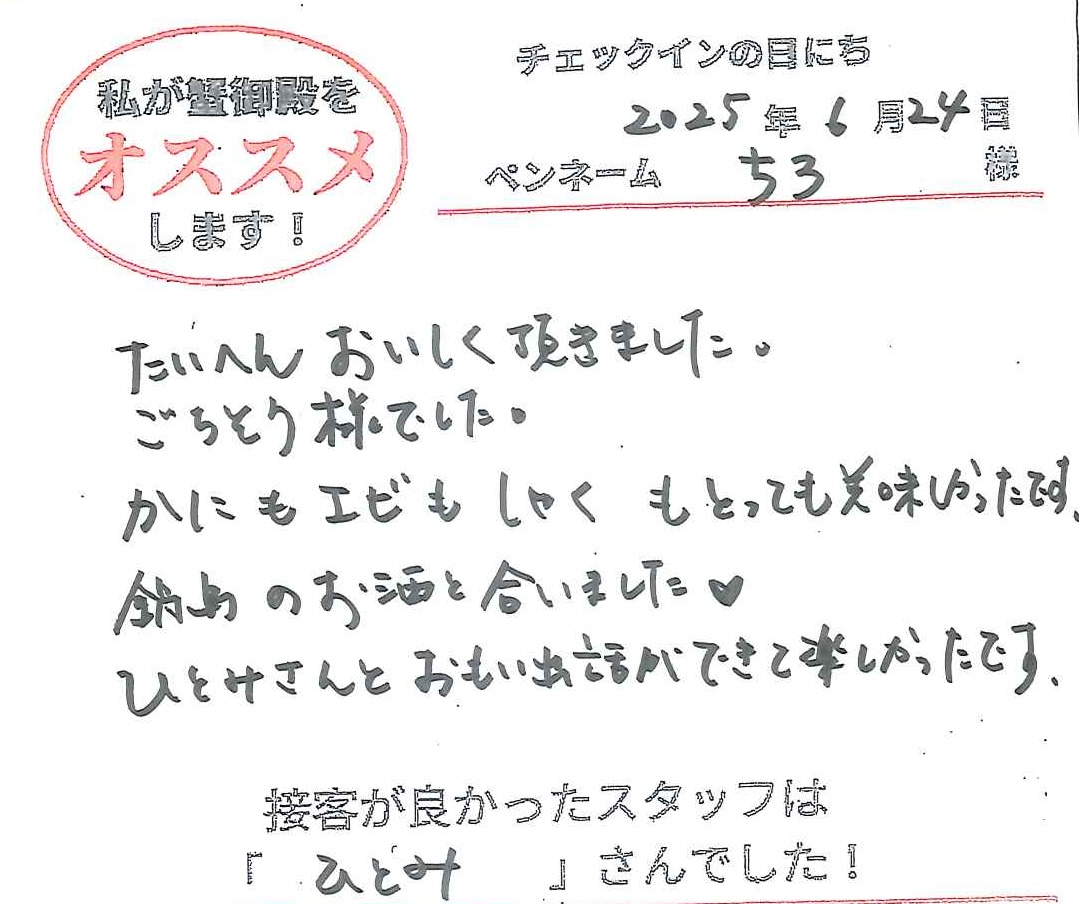 私が蟹御殿を
オススメ
します!
チェックインの日にち
2025年6月24日
ペンネーム ちろ 様
たいへんおいしく頂きました。
ごちそう様でした。
かにもエビもしゃくもとっても美味しかったです、
鍋島のお酒と合いました♥
ひとみさんとおもい出話ができて楽しかったです、
接客が良かったスタッフは
「ひとみ」さんでした!